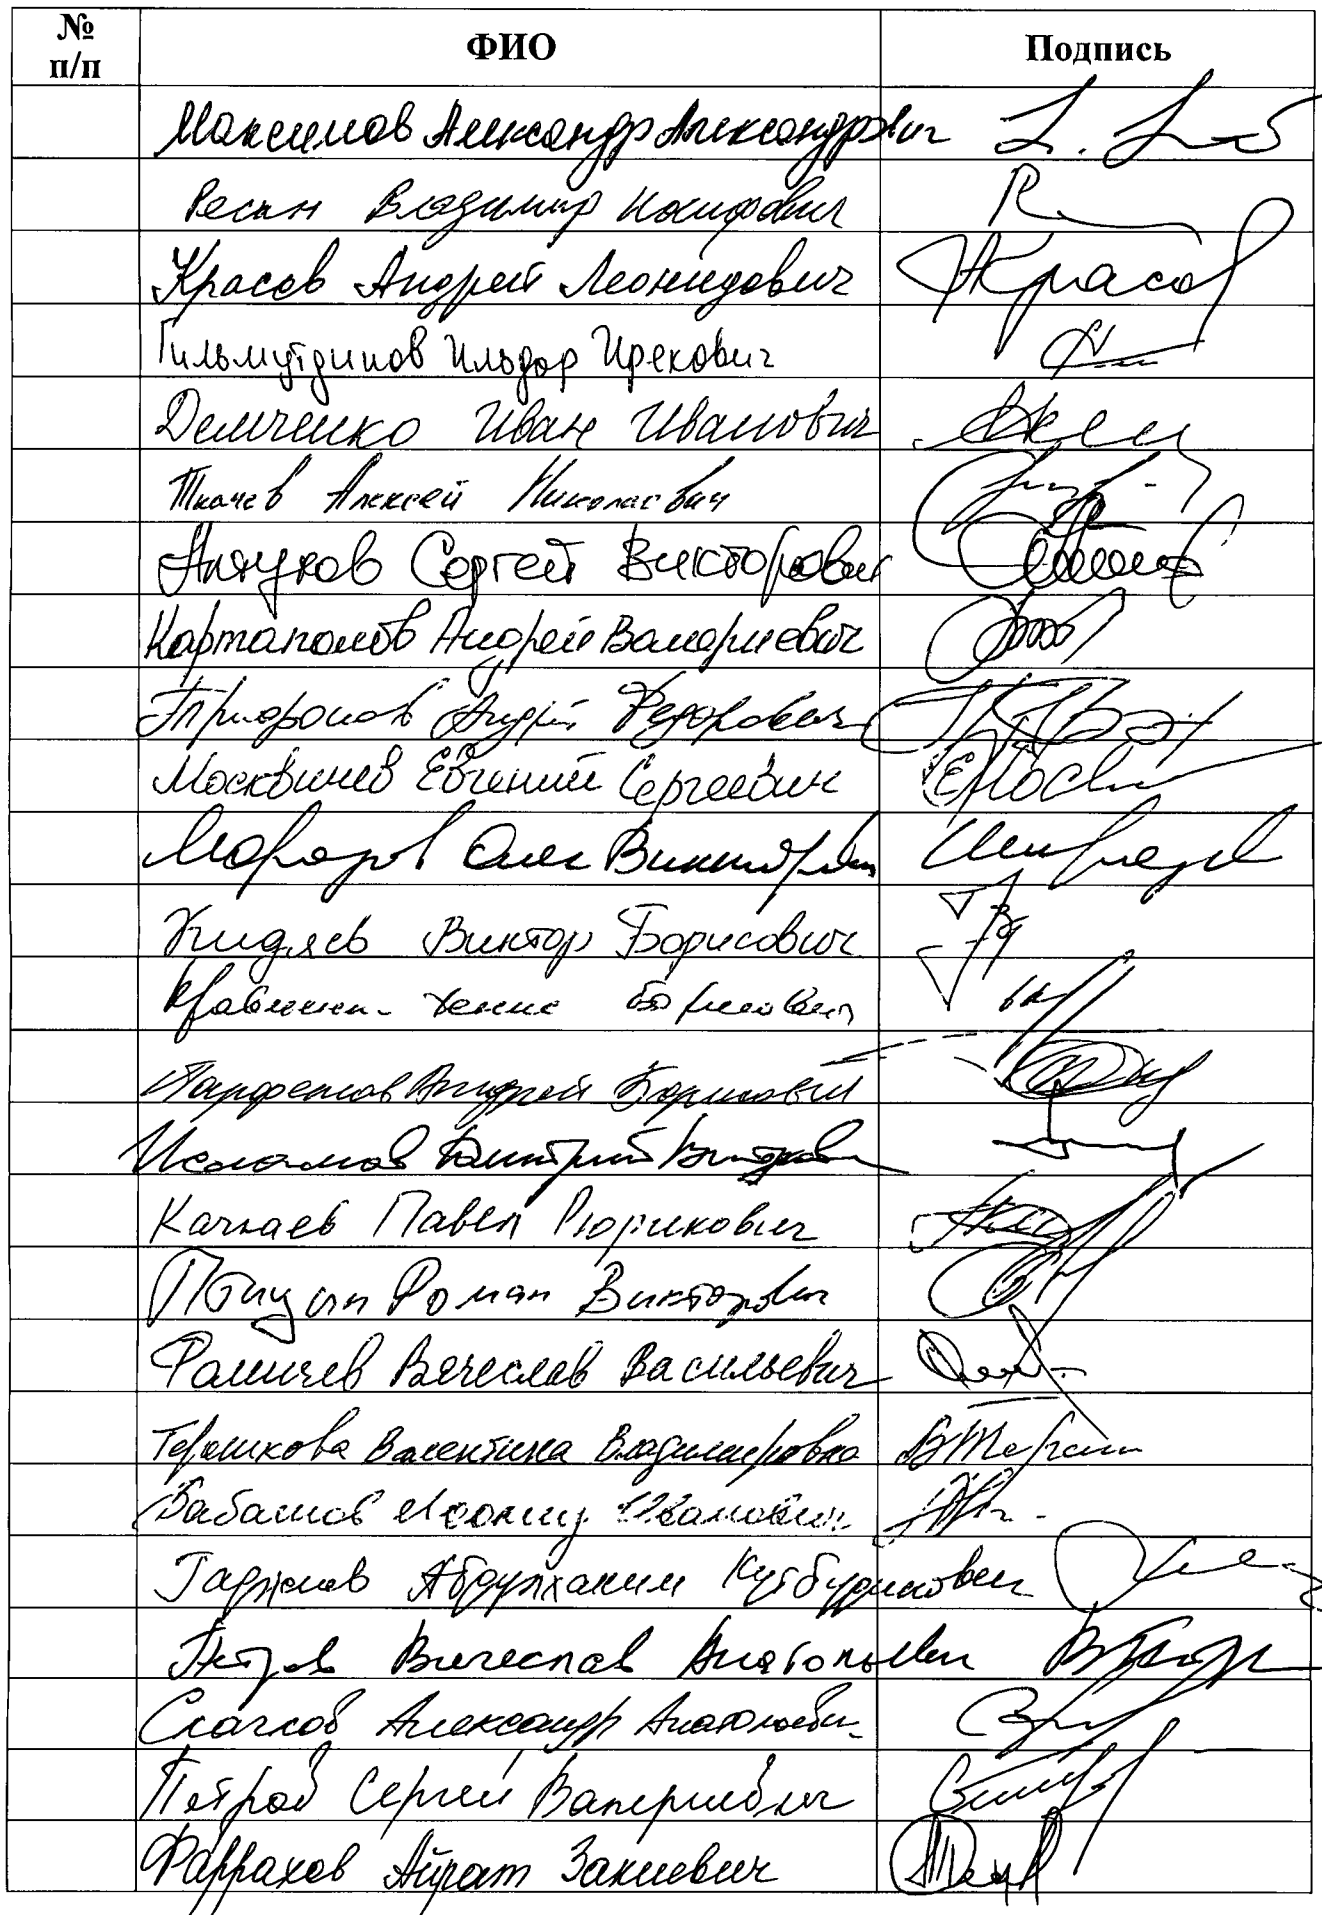 № п/п ФИО Подпись
Максимов Александр Александрович
Ресин Владимир Иосифович
Красов Андрей Леонидович Красов
Гильмутдинов Ильдар Ирекович
Демченко Иван Иванович
Ткачев Алексей Николаевич
Алтухов Сергей Викторович
Картаполов Андрей Валериевич
Трифонов Андрей Федорович
Москвичев Евгений Сергеевич
Морозов Олег Викторович
Кидяев Виктор Борисович
Кравченко Денис Борисович
Парфенов Андрей Борисович
Исламов Дмитрий Викторович
Качкаев Павел Рюрикович
Птицын Роман Викторович
Фомичев Вячеслав Васильевич
Терешкова Валентина Владимировна
Бабашов Леонид Иванович
Гаджиев Абдулхаким Кутбудинович
Петров Вячеслав Анатольевич
Скачков Александр Анатольеви
Петров Сергей Валериевич
Фаррахов Айрат Закиевич